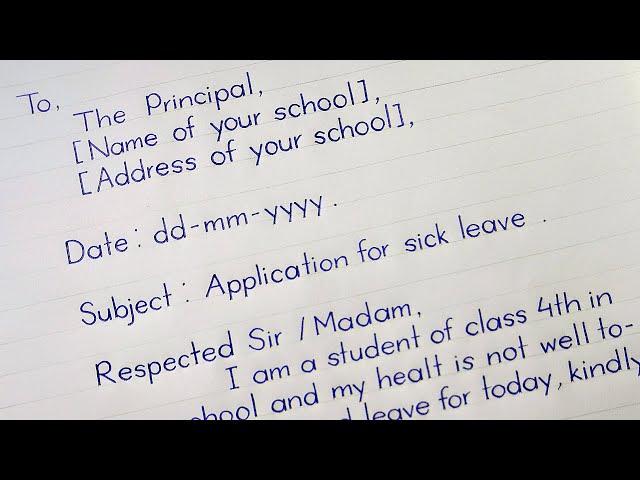 To,
The Principal,
[Name of your school],
[Address of your school],
Date: dd-mm-yyyy.
Subject: Application for sick leave.
Respected Sir / Madam,
I am a student of class 4th in
and my healt is not well to-
leave for today, kindly